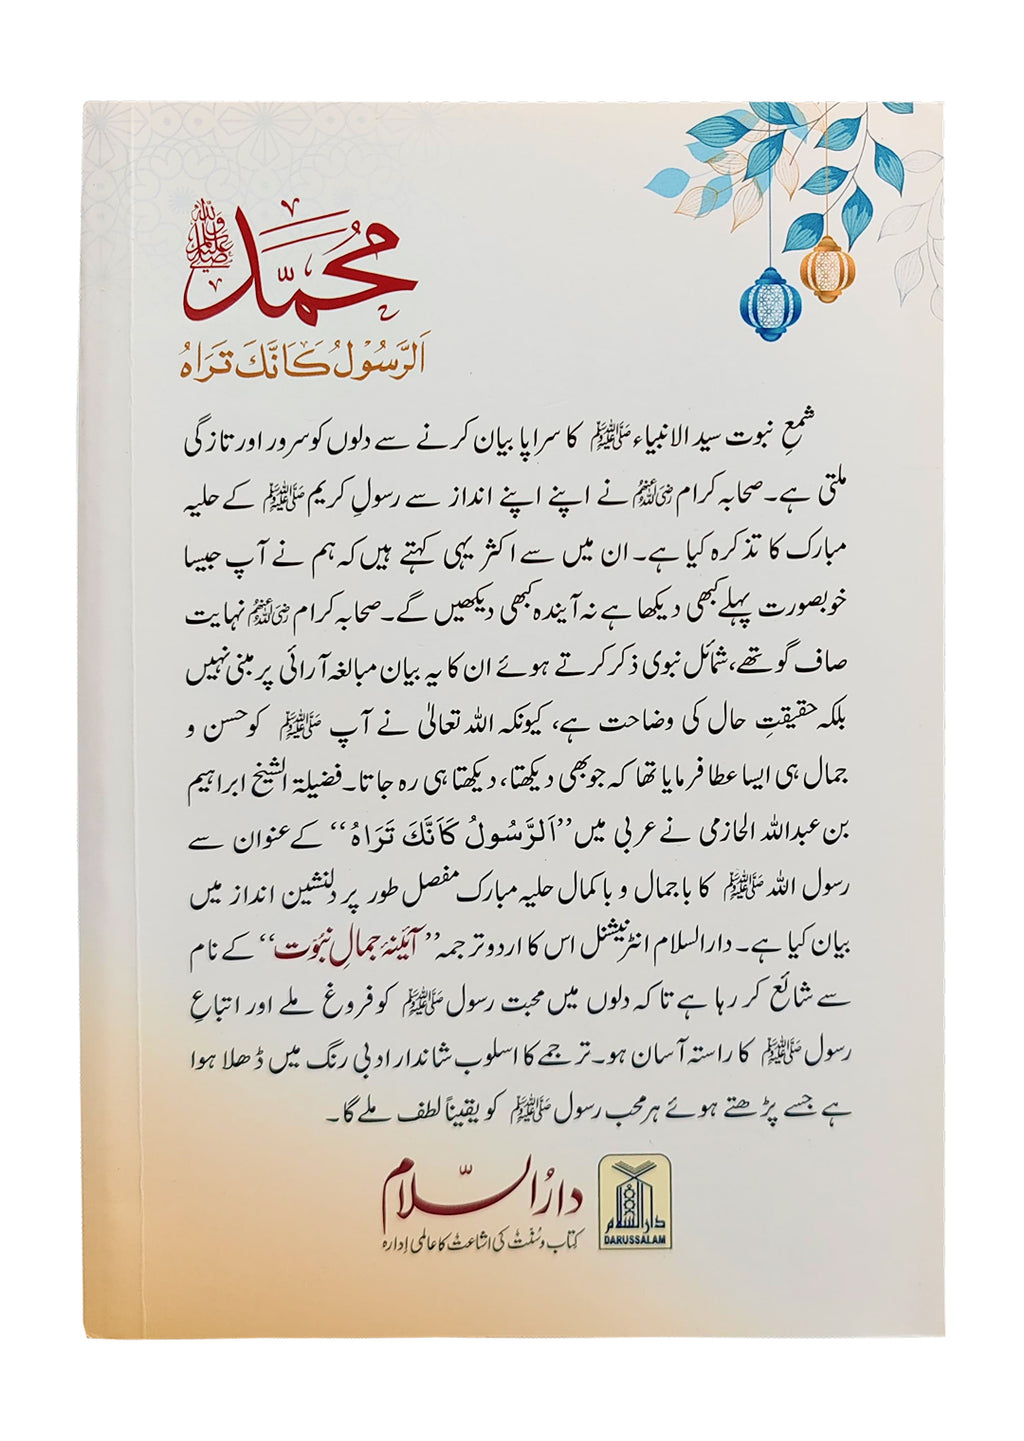 محمد صلى الله عليه وسلم
اَلرَّسُوْلُ كَاَنَّكَ تَرَاهُ
شمعِ نبوت سید الانبیاء ﷺ کا سراپا بیان کرنے سے دلوں کو سرور اور تازگی
ملتی ہے۔ صحابہ کرام رضی اللہ عنہم نے اپنے اپنے انداز سے رسولِ کریم ﷺ کے حلیہ
مبارک کا تذکرہ کیا ہے۔ ان میں سے اکثر یہی کہتے ہیں کہ ہم نے آپ جیسا
خوبصورت پہلے کبھی دیکھا ہے نہ آیندہ کبھی دیکھیں گے۔ صحابہ کرام رضی اللہ عنہم نہایت
صاف گو تھے، شمائل نبوی ذکر کرتے ہوئے ان کا یہ بیان مبالغہ آرائی پر مبنی نہیں
بلکہ حقیقتِ حال کی وضاحت ہے، کیونکہ اللہ تعالیٰ نے آپ ﷺ کو حسن و
جمال ہی ایسا عطا فرمایا تھا کہ جو بھی دیکھتا، دیکھتا ہی رہ جاتا۔ فضیلۃ الشیخ ابراہیم
بن عبداللہ الحازمی نے عربی میں ’’اَلرَّسُولُ كَاَنَّكَ تَرَاهُ‘‘ کے عنوان سے
رسول اللہ ﷺ کا باجمال و باکمال حلیہ مبارک مفصل طور پر دلنشین انداز میں
بیان کیا ہے۔ دارالسلام انٹرنیشنل اس کا اردو ترجمہ ’’آئینۂ جمالِ نبوّت‘‘ کے نام
سے شائع کر رہا ہے تا کہ دلوں میں محبت رسول ﷺ کو فروغ ملے اور اتباعِ
رسول ﷺ کا راستہ آسان ہو۔ ترجمے کا اسلوب شاندار ادبی رنگ میں ڈھلا ہوا
ہے جسے پڑھتے ہوئے ہر محب رسول ﷺ کو یقیناً لطف ملے گا۔
دارُالسّلام
کتاب و سُنّت کی اشاعت کا عالمی اِدارہ
دارالسلام
DARUSSALAM